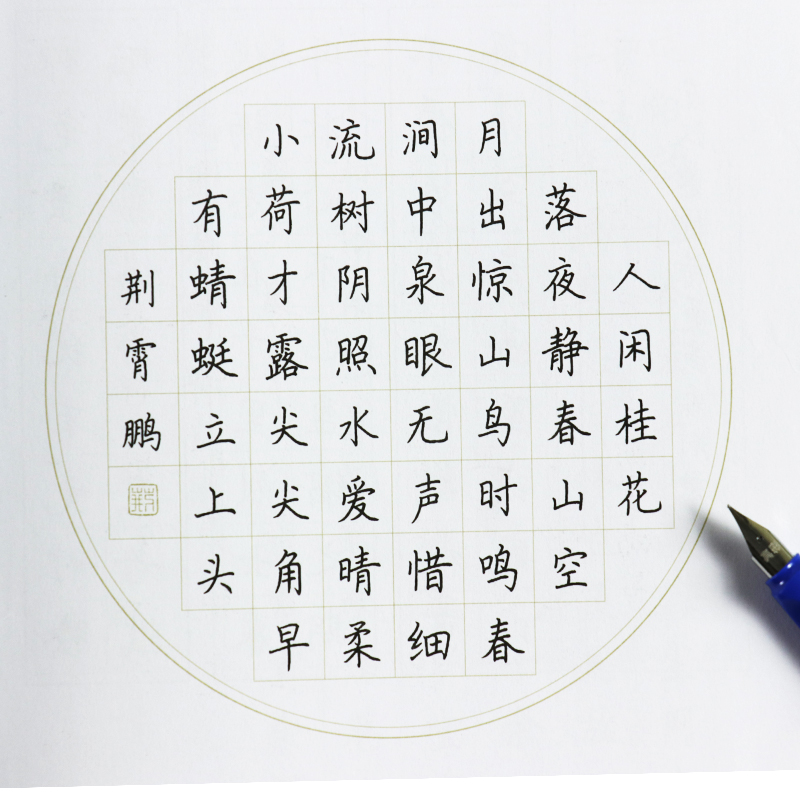 人闲桂花
落夜静春山空
月出惊山鸟时鸣春
涧中泉眼无声惜细
流树阴照水爱晴柔
小荷才露尖尖角早
有蜻蜓立上头
荆霄鹏